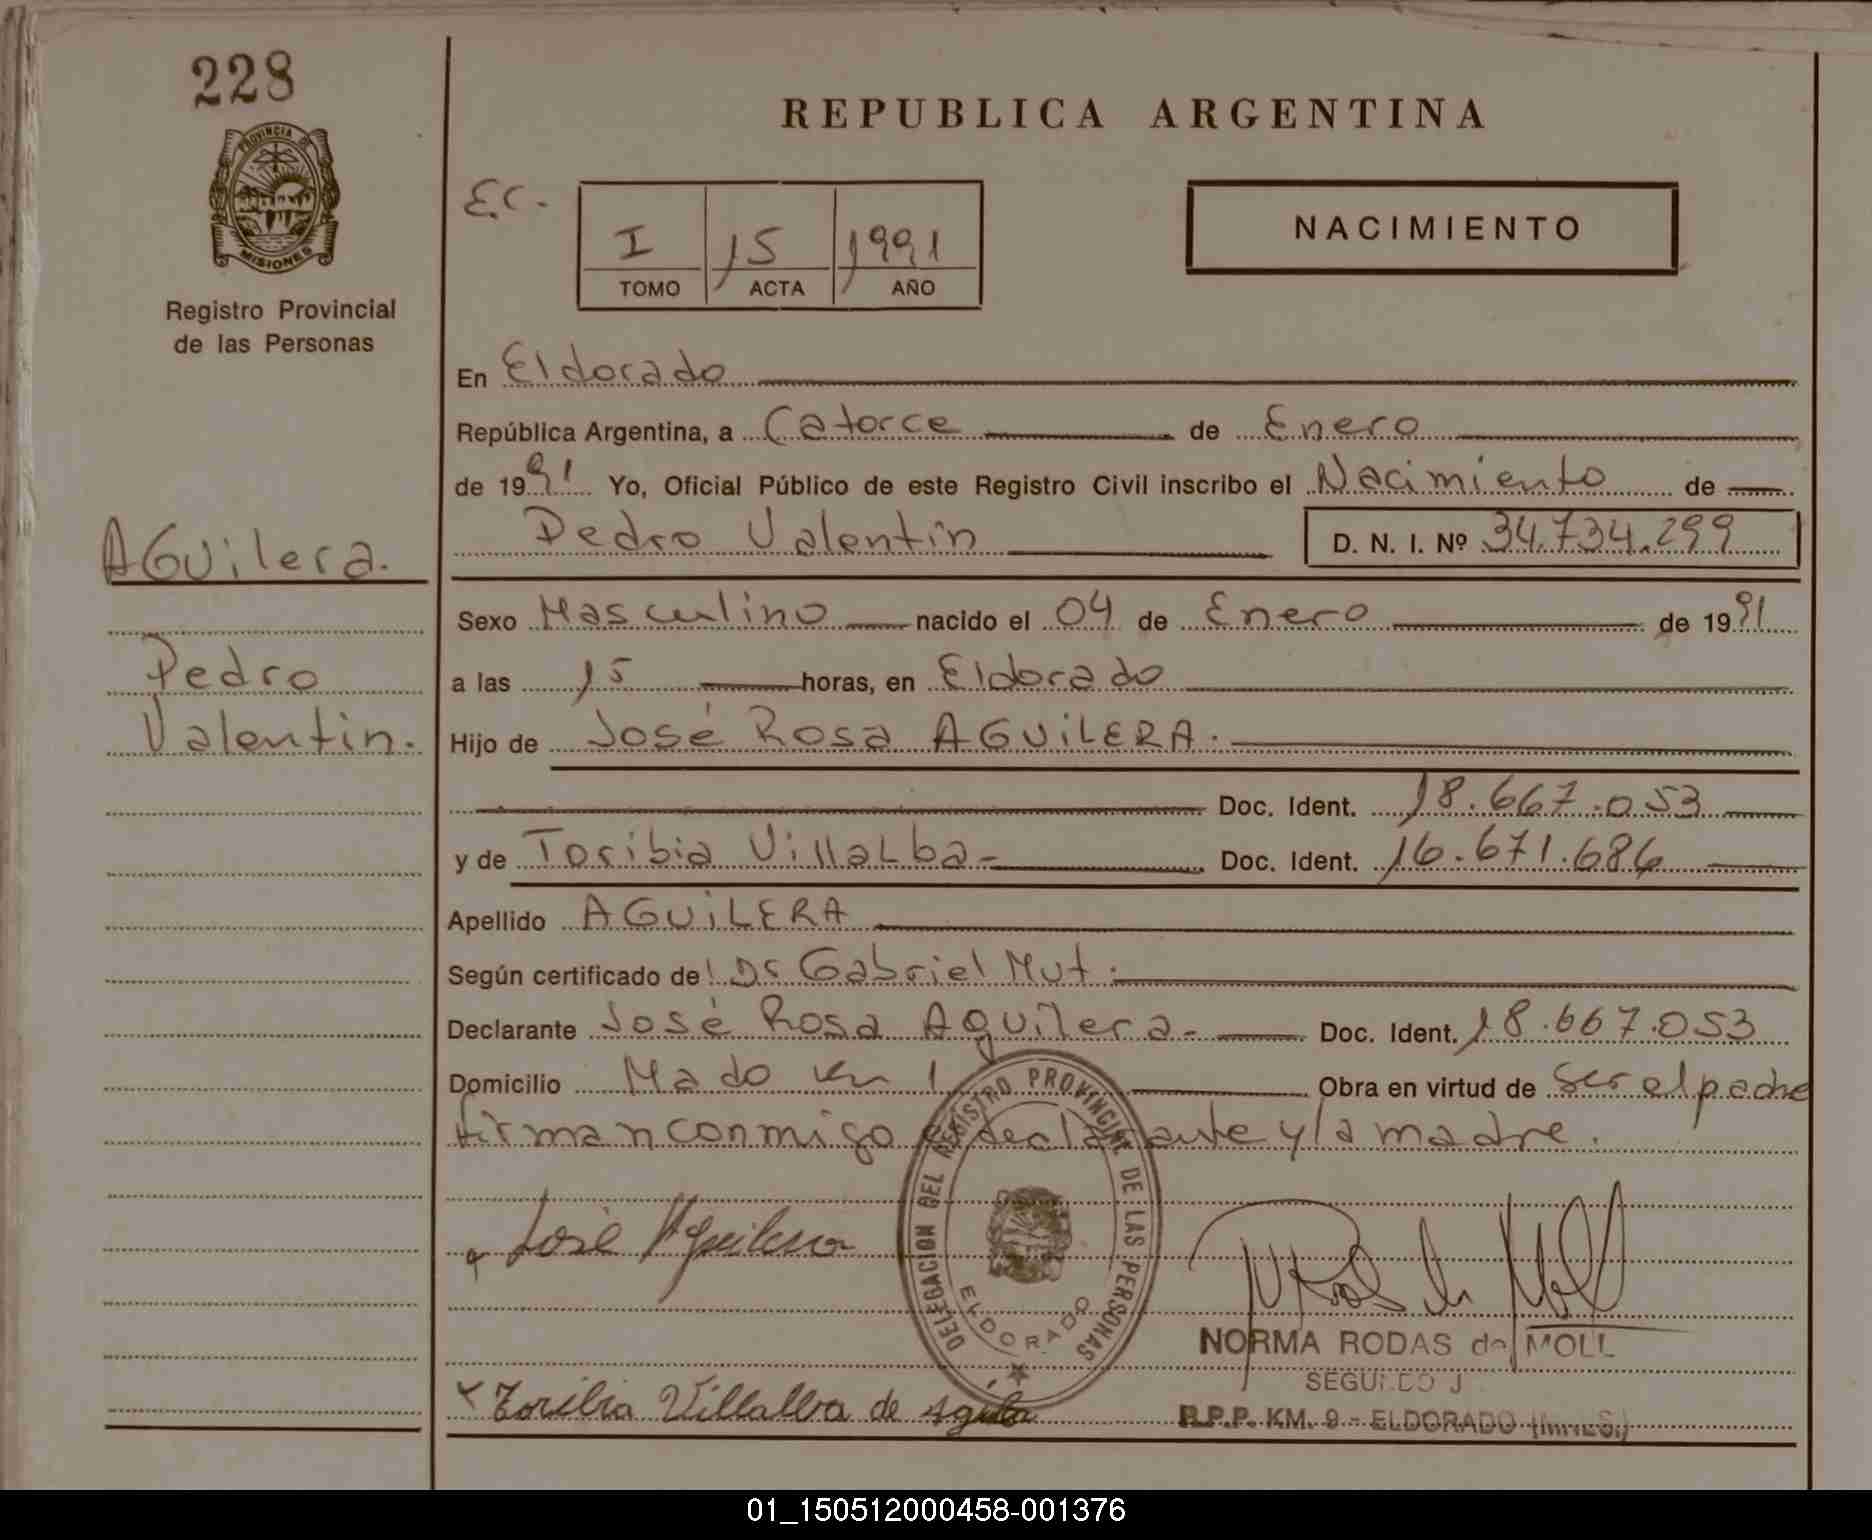 228
PROVINCIA DE
MISIONES
Registro Provincial
de las Personas
AGuilera.
Pedro
Valentin.
REPUBLICA ARGENTINA
E.C.
I 15 1991
TOMO ACTA AÑO
NACIMIENTO
En Eldorado
República Argentina, a Catorce de Enero
de 1991 Yo, Oficial Público de este Registro Civil inscribo el Nacimiento de
Pedro Valentin D. N. I. Nº 34.734.299
Sexo Masculino nacido el 04 de Enero de 1991
a las 15 horas, en Eldorado
Hijo de José Rosa AGUiLERA.
Doc. Ident. 18.667.053
y de Toribia Villalba- Doc. Ident. 16.671.686
Apellido AGUiLERA
Según certificado de: Dr Gabriel Mut.
Declarante José Rosa Aguilera- Doc. Ident. 18.667.053
Domicilio Mado km 1 Obra en virtud de ser el padre
firman conmigo el declarante y la madre.
José Aguilera
DELEGACION DEL REGISTRO PROVINCIAL DE LAS PERSONAS
ELDORADO
NORMA RODAS de MOLL
R.P.P. KM. 9 - ELDORADO (Mnes.)
Toribia Villalba de
01_150512000458-001376